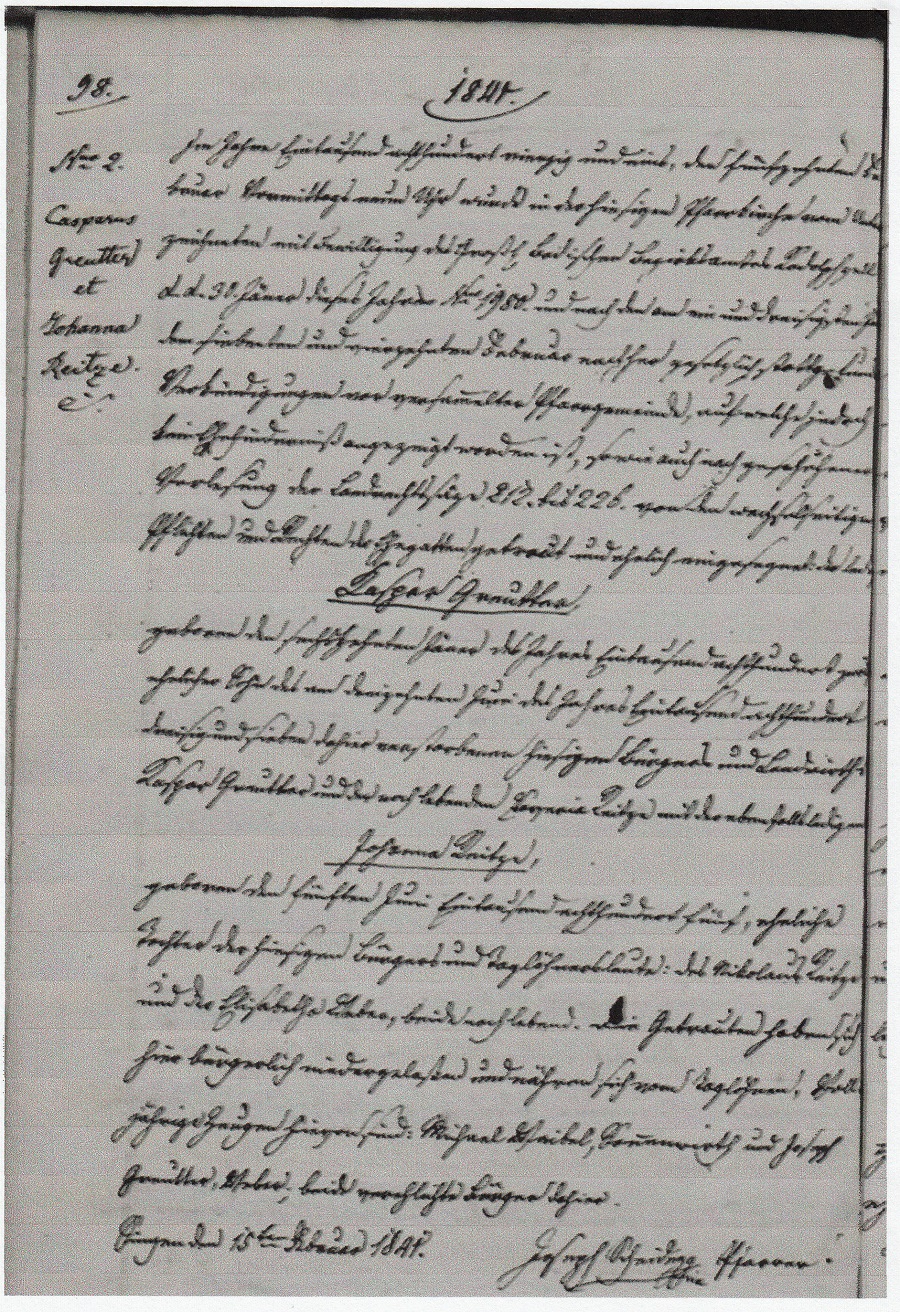 98.
1841.
Nro 2.
Casparus
Greutter
et
Johanna
Reitze.
Im Jahre Eintausend achthundert vierzig und eins, den fünfzehnten Fe
bruar Vormittags neun Uhr wurde in der hiesigen Pfarrkirche vom Unter
zeichneten mit Bewilligung des Großh. Badischen Bezirksamtes Radolphzell
d. d. 30. Jäner dieses Jahres Nro 1950. und nach den am ein und dreisigsten
den siebenten und vierzehnten Februar nachher gesetzlich stattgefund
Verkündigungen vor versammelter Pfarrgemeinde, auf welche jedoch
kein Ehehinderniß angezeigt worden ist, sowie auch nach geschehener
Verlesung der Landrechtssäze 212. bis 226. von den wechselseitigen
Pflichten und Rechten der Ehegatten getraut und ehelich eingesegnet: der
Kaspar Greutter,
geboren den sechszehnten Jäner des Jahres Eintausend achthundert
ehelicher Sohn des am dreizehnten Juni des Jahres Eintausend achthundert
dreisig und sieben dahier verstorbenen hiesigen Bürgers und Landwirths
Kaspar Greutter und der noch lebenden Reitze mit der ebenfalls ledigen
Johanna Reitze,
geboren den fünften Juni Eintausend achthundert fünf, eheliche
Tochter der hiesigen Bürgers und Taglöhnersleute: des Nikolaus Reitze
und der Elisabetha Weber, beide noch lebend. Die Getrauten haben sich
hier bürgerlich niedergelassen und nähren sich vom Taglöhnen. Voll
jährige Zeugen hievon sind: Michael Waibel, Sonnenwirth und Joseph
Greutter, Weber, beide verehlichte Bürger dahier.
Singen den 15ten Februar 1841.
Joseph Scheidegg Pfarrer